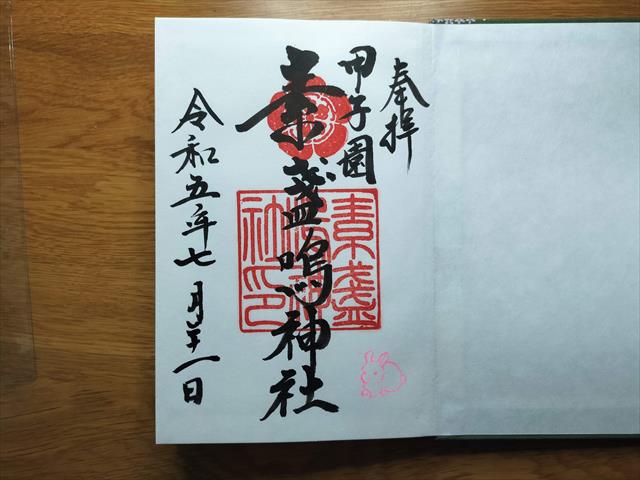 奉拝
甲子園
素盞嗚神社
素盞
嗚神
社印
令和五年七月二十一日